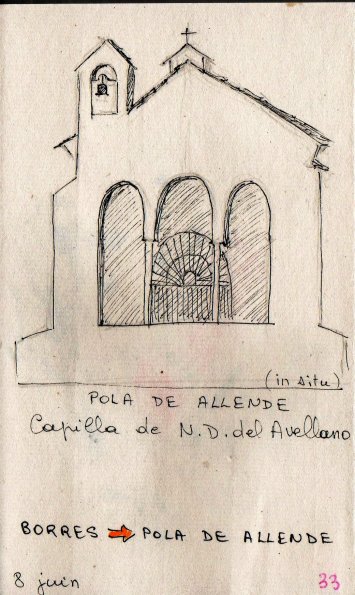 (in situ)
POLA DE ALLENDE
Capilla de N.D. del Avellano
BORRES → POLA DE ALLENDE
8 juin
33